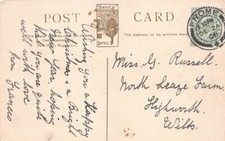 POST CARD
FROME
Wishing you a Happy
Christmas & a Bright
New Year, hoping
that you are quite
well with love
from Frances
Miss G. Russell.
North Leaze Farm
Highworth.
Wilts.